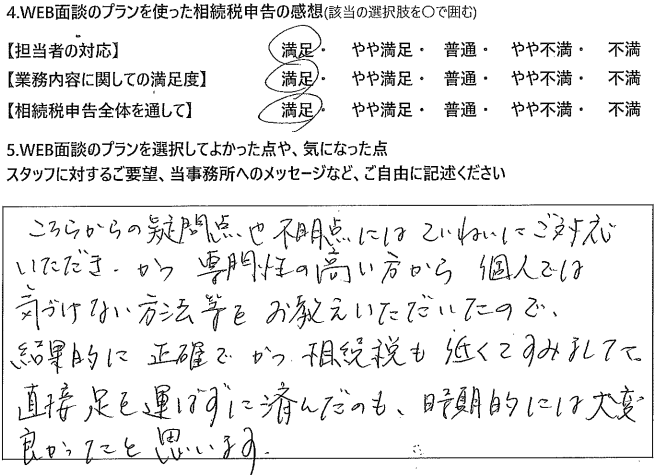 4.WEB面談のプランを使った相続税申告の感想(該当の選択肢を〇で囲む)
【担当者の対応】 満足・ やや満足・ 普通・ やや不満・ 不満
【業務内容に関しての満足度】 満足・ やや満足・ 普通・ やや不満・ 不満
【相続税申告全体を通して】 満足・ やや満足・ 普通・ やや不満・ 不満
5.WEB面談のプランを選択してよかった点や、気になった点
スタッフに対するご要望、当事務所へのメッセージなど、ご自由に記述ください
こちらからの疑問点や不明点にはていねいにご対応
いただき、かつ専門性の高い方から個人では
気づけない方法等をお教えいただいたので、
結果的に正確でかつ相続税も近くですみまして。
直接足を運ばずに済んだのも、時期的には大変
良かったこと思います。